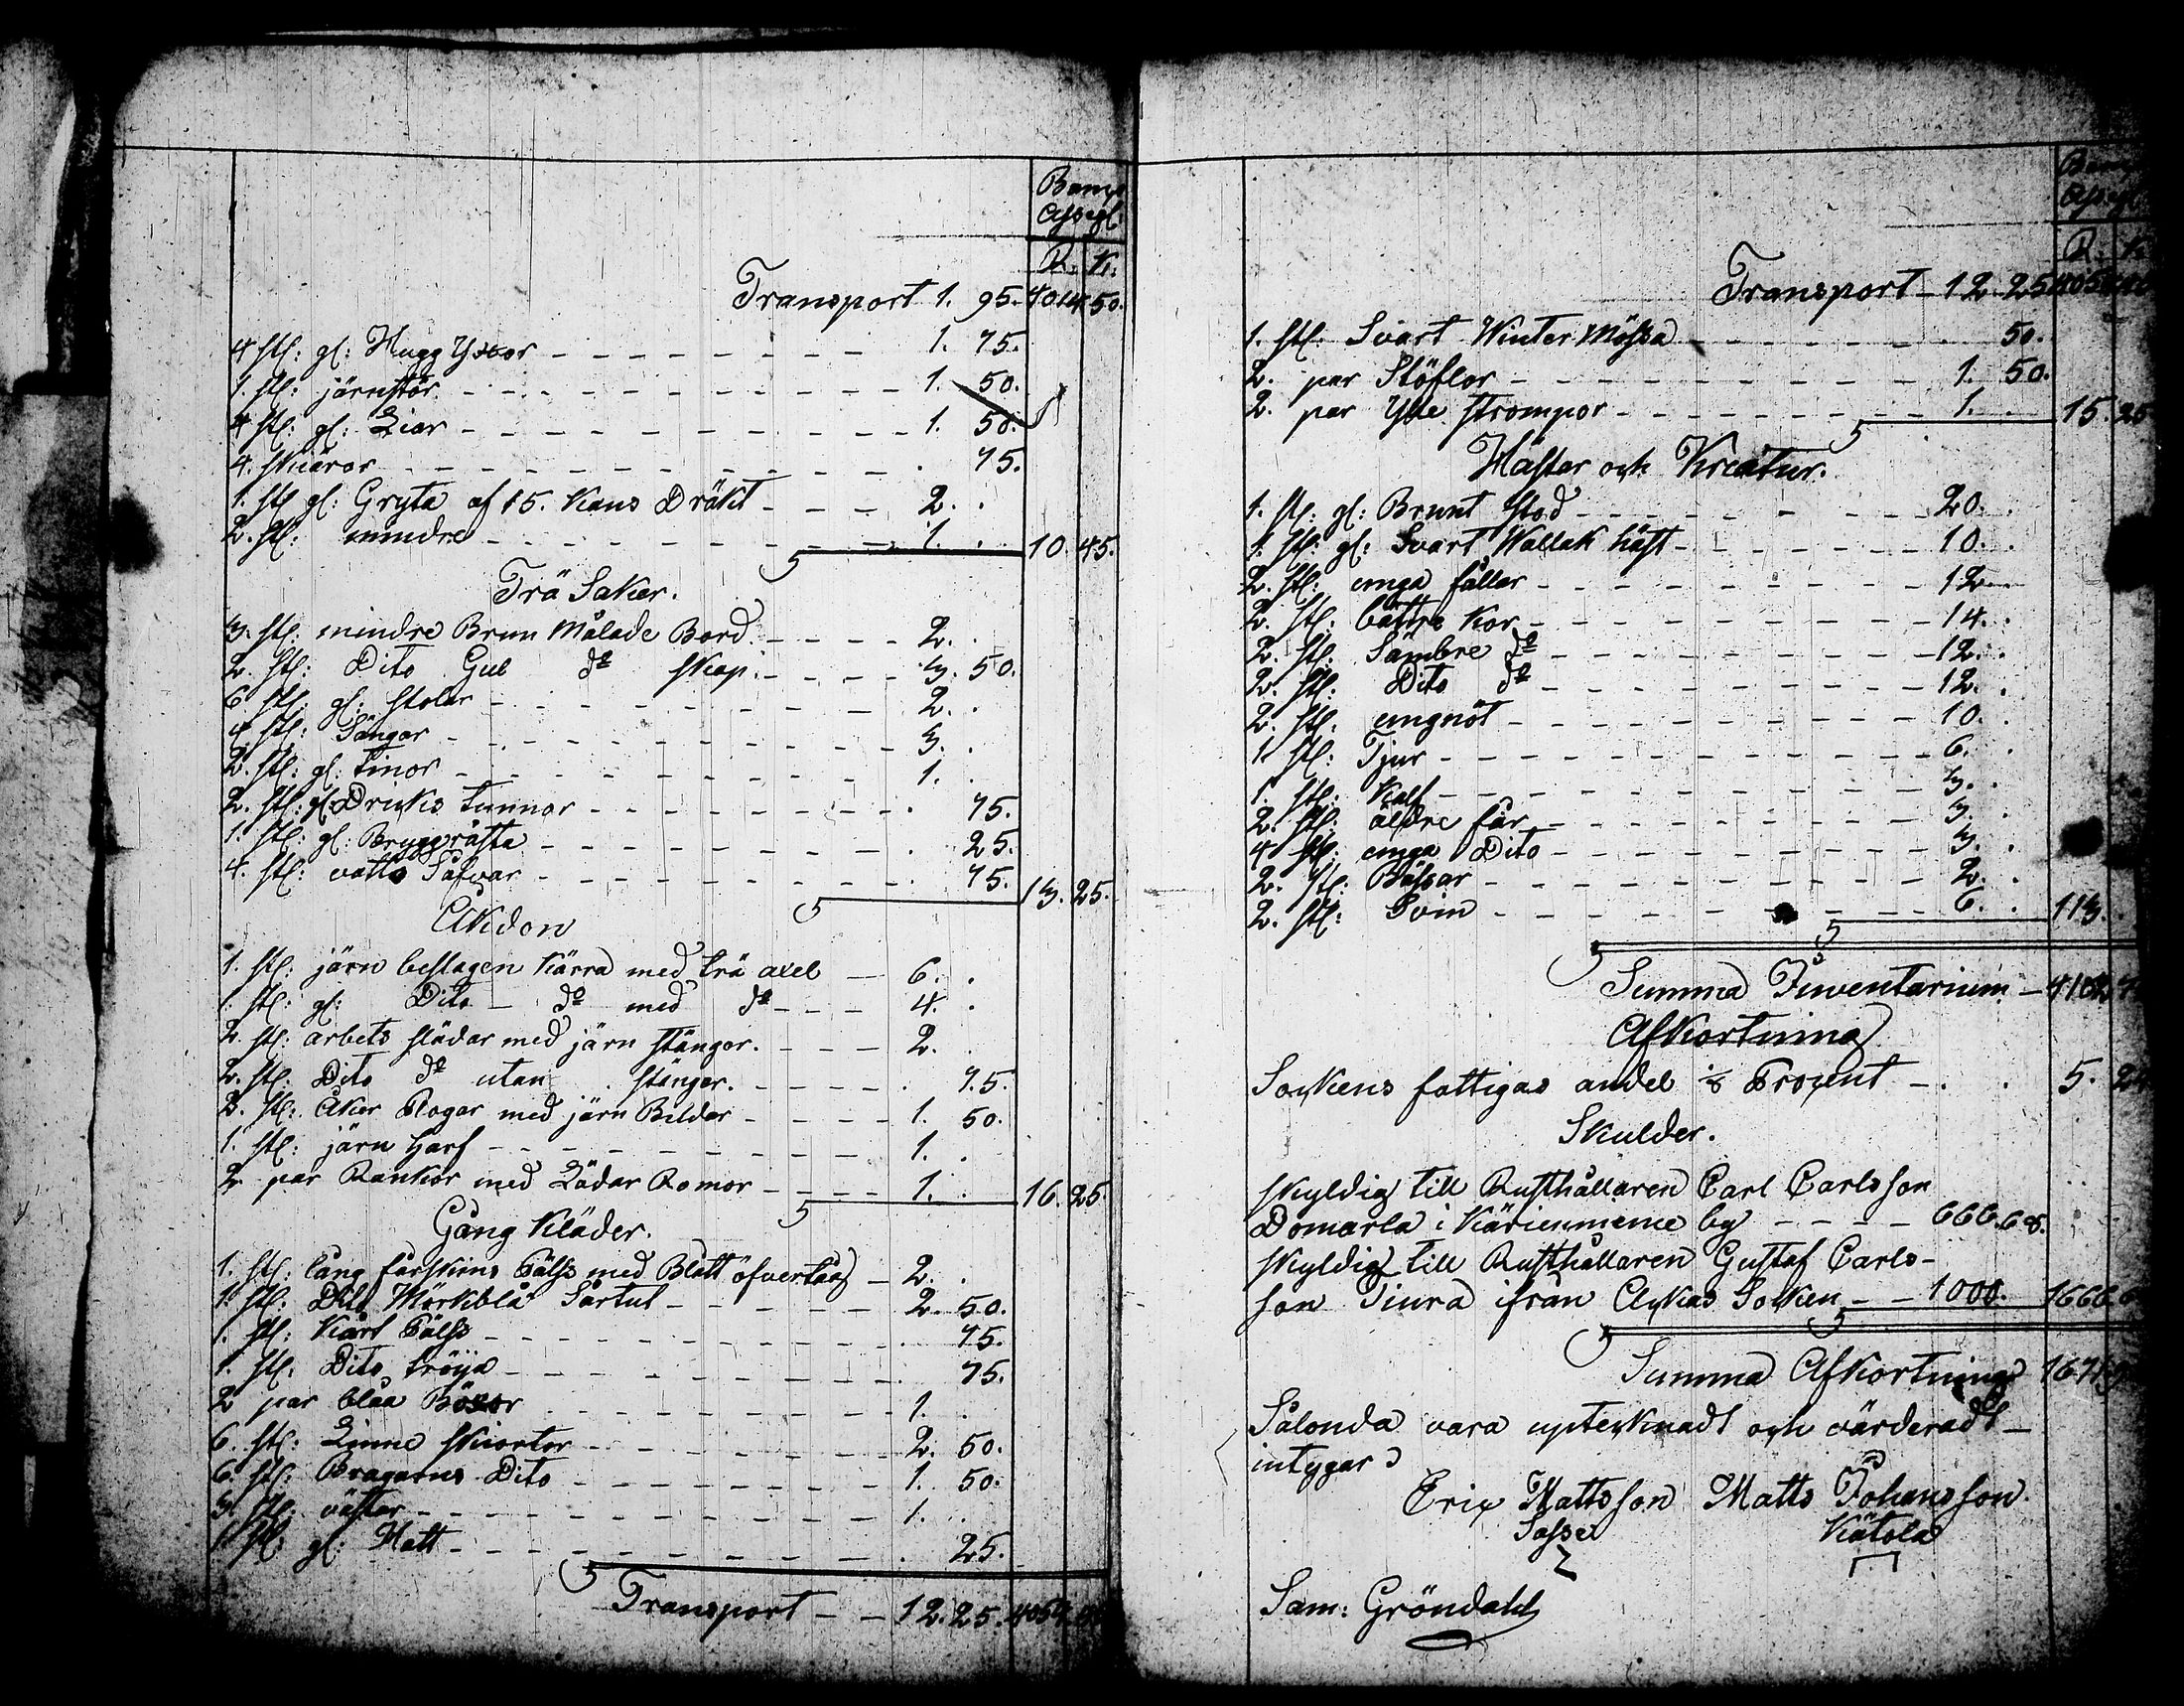 Banco
Assegl:
R. K.
Transport 1. 95. 4014 50.
4 stl: gl: Hugg Yxor 1. 75.
1. stl: järnstör 1. 50.
4 stl: gl: Liar 1. 50.
4. skiäror . 75.
1. stl gl: Gryta af 15. Kans Dräkt 2. .
2. stl: mindre 1. . 10. 45.
Trä Saker.
3. stl: mindre Brun Målade Bord 2. .
2. stl: Dito Gul do skåp 3. 50.
6 stl: gl: stolar 2. .
4 stl: Sängar 3. .
2. stl: gl: tinor 1. .
2. stl: gl: Dricks tunnor . 75.
1. stl: gl: Bryggråsta . 25.
4. stl: vatts Såfvar . 75. 13. 25.
Åkdon
1. stl: järn beslagen Kärra med trä axel 6. .
1. stl: gl: Dito do med do 4. .
2. stl: arbets slädar med järn stänger. 2. .
2. stl: Dito do utan stänger. . 75.
2. stl: Åker Plogar med järn Bildar 1. 50.
1. stl: järn Harf 1. .
2 par Rankor med Lädar Romor 1. . 16. 25.
Gång Kläder.
1. stl: lång fårskins Pälss med Blått öfvertåg 2. .
1. stl: Dito Mörkblå Sartut 2. 50.
1. stl: Kårt Pälss . 75.
1. stl: Dito tröija . 75.
2 par blåa Böxor 1. .
6. stl: Linne skiortor 2. 50.
6. stl: Bragarns Dito 1. 50.
3. stl: västar 1. .
1 stl: gl: Hatt . 25.
Transport 12. 25. 4054
Banco
Assegl
R. K
Transport 12. 25 4054
1. stl: Svart Winter Mössa . 50.
2. par Stöflor 1. 50.
2. par Ylle strompor 1. . 15. 25
Hästar och Kreatur.
1. stl: gl: Brunt stod 20. .
1. stl: gl: Svart Wallak häst 10. .
2. stl: unga fållar 12
2. stl: bättre Kor 14. .
2. stl: Sämbre do 12. .
2. stl: Dito do 12. .
2. stl: ungnöt 10. .
1. stl: Tjur 6. .
1. stl: Kalf 3. .
2. stl: äldre får 3. .
4 stl: unga Dito 3. .
2. stl: Båssar 2. .
2. stl: Svin 6. . 113. .
Summa Inventarium
Afkortning
Sockens fattigas andel ⅛ Prozent 5.
Skulder.
Skyldig till Rusthållaren Carl Carlsson
Domarla i Kärienmeme by 666.68.
Skyldig till Rusthållaren Gustaf Carls-
son Tiura ifrån Ackas Socken 1000. 1666
Summa Afkortning 1671
Sålonda vara uptecknadt och värderadt
intygar
Eric Mattsson Matts Johansson.
Sasse Kätola
Sam: Gröndahl